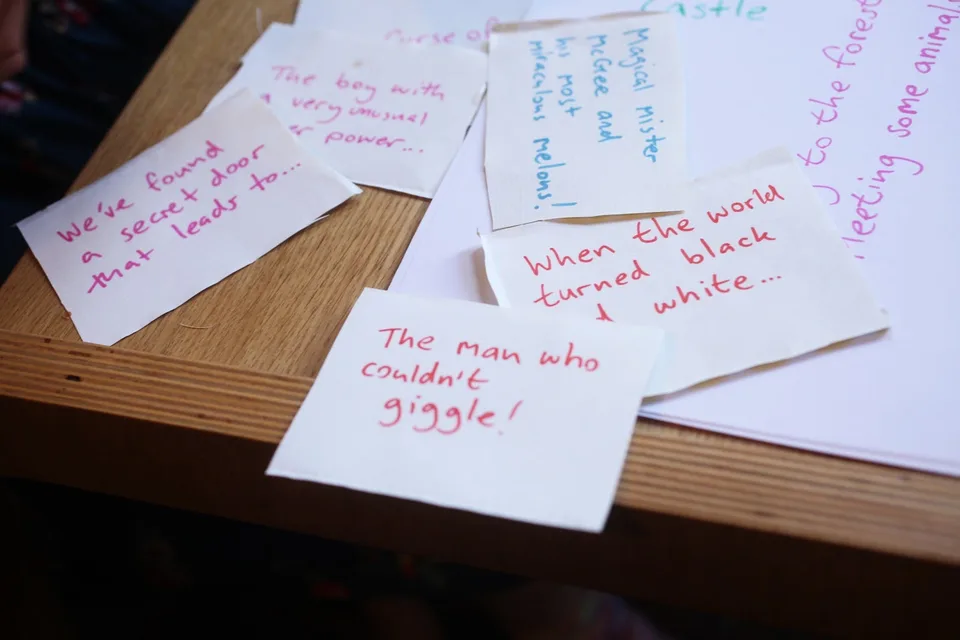 Curse of
The boy with
a very unusual
power...
We've found
a secret door
that leads to...
Magical mister
McGee and
his most
miraculous melons!
When the world
turned black
white...
The man who
couldn't
giggle!
Castle
to the forest
Meeting some animals